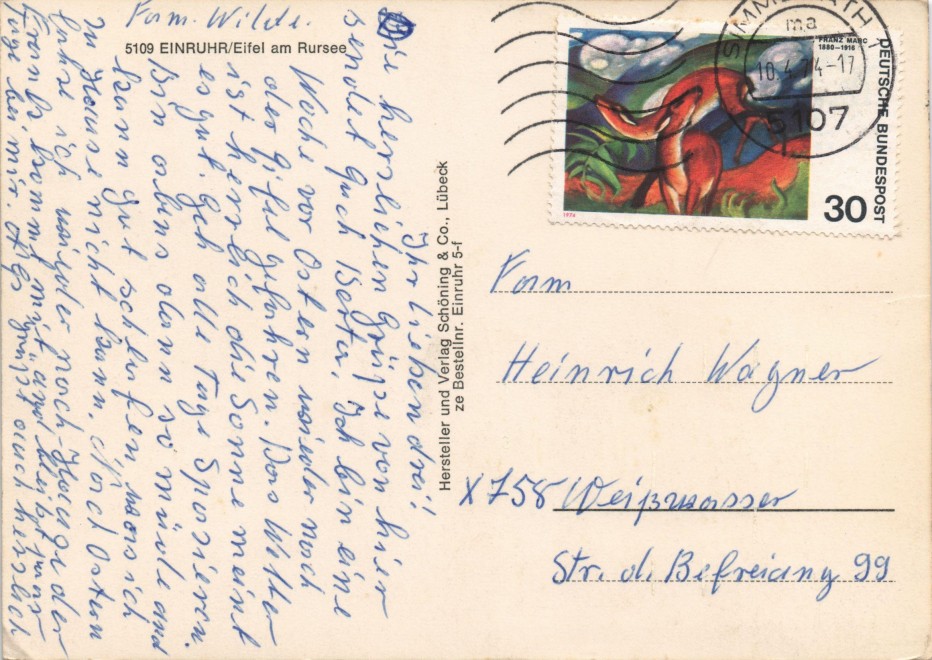 Fam. Wilde.
5109 EINRUHR/Eifel am Rursee
Ihr lieben drei!
Die herzlichen Grüße von hier
sendet Euch Berta, Ich bin eine
Woche vor Ostern wieder nach
der Eifel gefahren. Das Wetter
ist herrlich die Sonne meint
es gut. Geh alle Tage Spazieren.
Bin abens dann so müde und
kann gut schlafen, was ich
zu Hause nicht kann. Nach Ostern
fahre ich wieder nach Hause der
Frank kommt mit und bleibt paar
Tage bei mir. Also grüßt auch herzlich
Hersteller und Verlag Schöning & Co., Lübeck
ze Bestellnr. Einruhr 5-f
SIMMERATH 1
ma
10.4.74-17
5107
FRANZ MARC
1880–1916
DEUTSCHE BUNDESPOST
30
1974
Fam
Heinrich Wagner
X 758 Weißwasser
Str. d. Befreiung 99